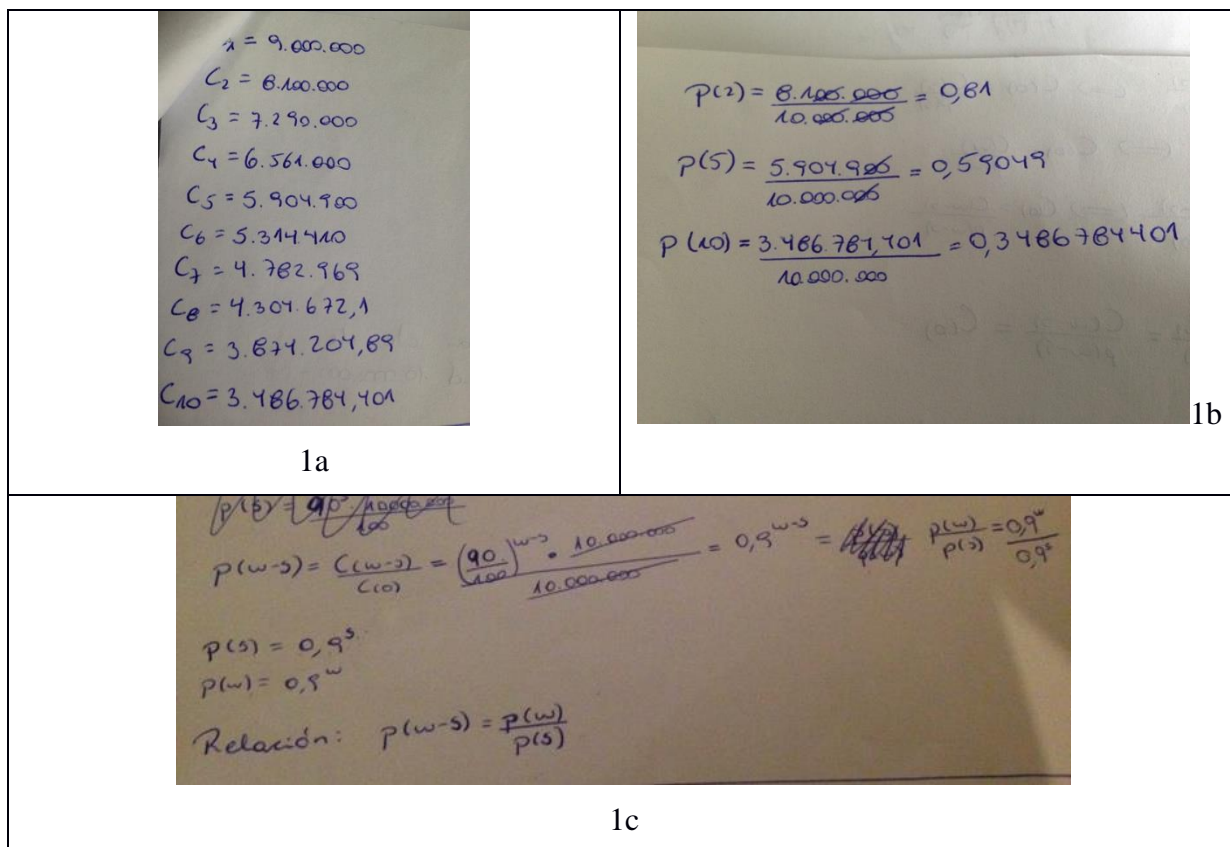 1 = 9.000.000
C₂ = 8.100.000
C₃ = 7.290.000
C₄ = 6.561.000
C₅ = 5.904.900
C₆ = 5.314.410
C₇ = 4.782.969
C₈ = 4.304.672,1
C₉ = 3.874.204,89
C₁₀ = 3.486.784,401
1a
p(2) = 8.100.000 / 10.000.000 = 0,81
p(5) = 5.904.900 / 10.000.000 = 0,59049
p(10) = 3.486.784,401 / 10.000.000 = 0,3486784401
1b
p(w-s) = C(w-s) / C(0) = (90/100)^(w-s) · 10.000.000 / 10.000.000 = 0,9^(w-s) = p(w)/p(s) = 0,9^w / 0,9^s
p(s) = 0,9^s
p(w) = 0,9^w
Relación: p(w-s) = p(w)/p(s)
1c